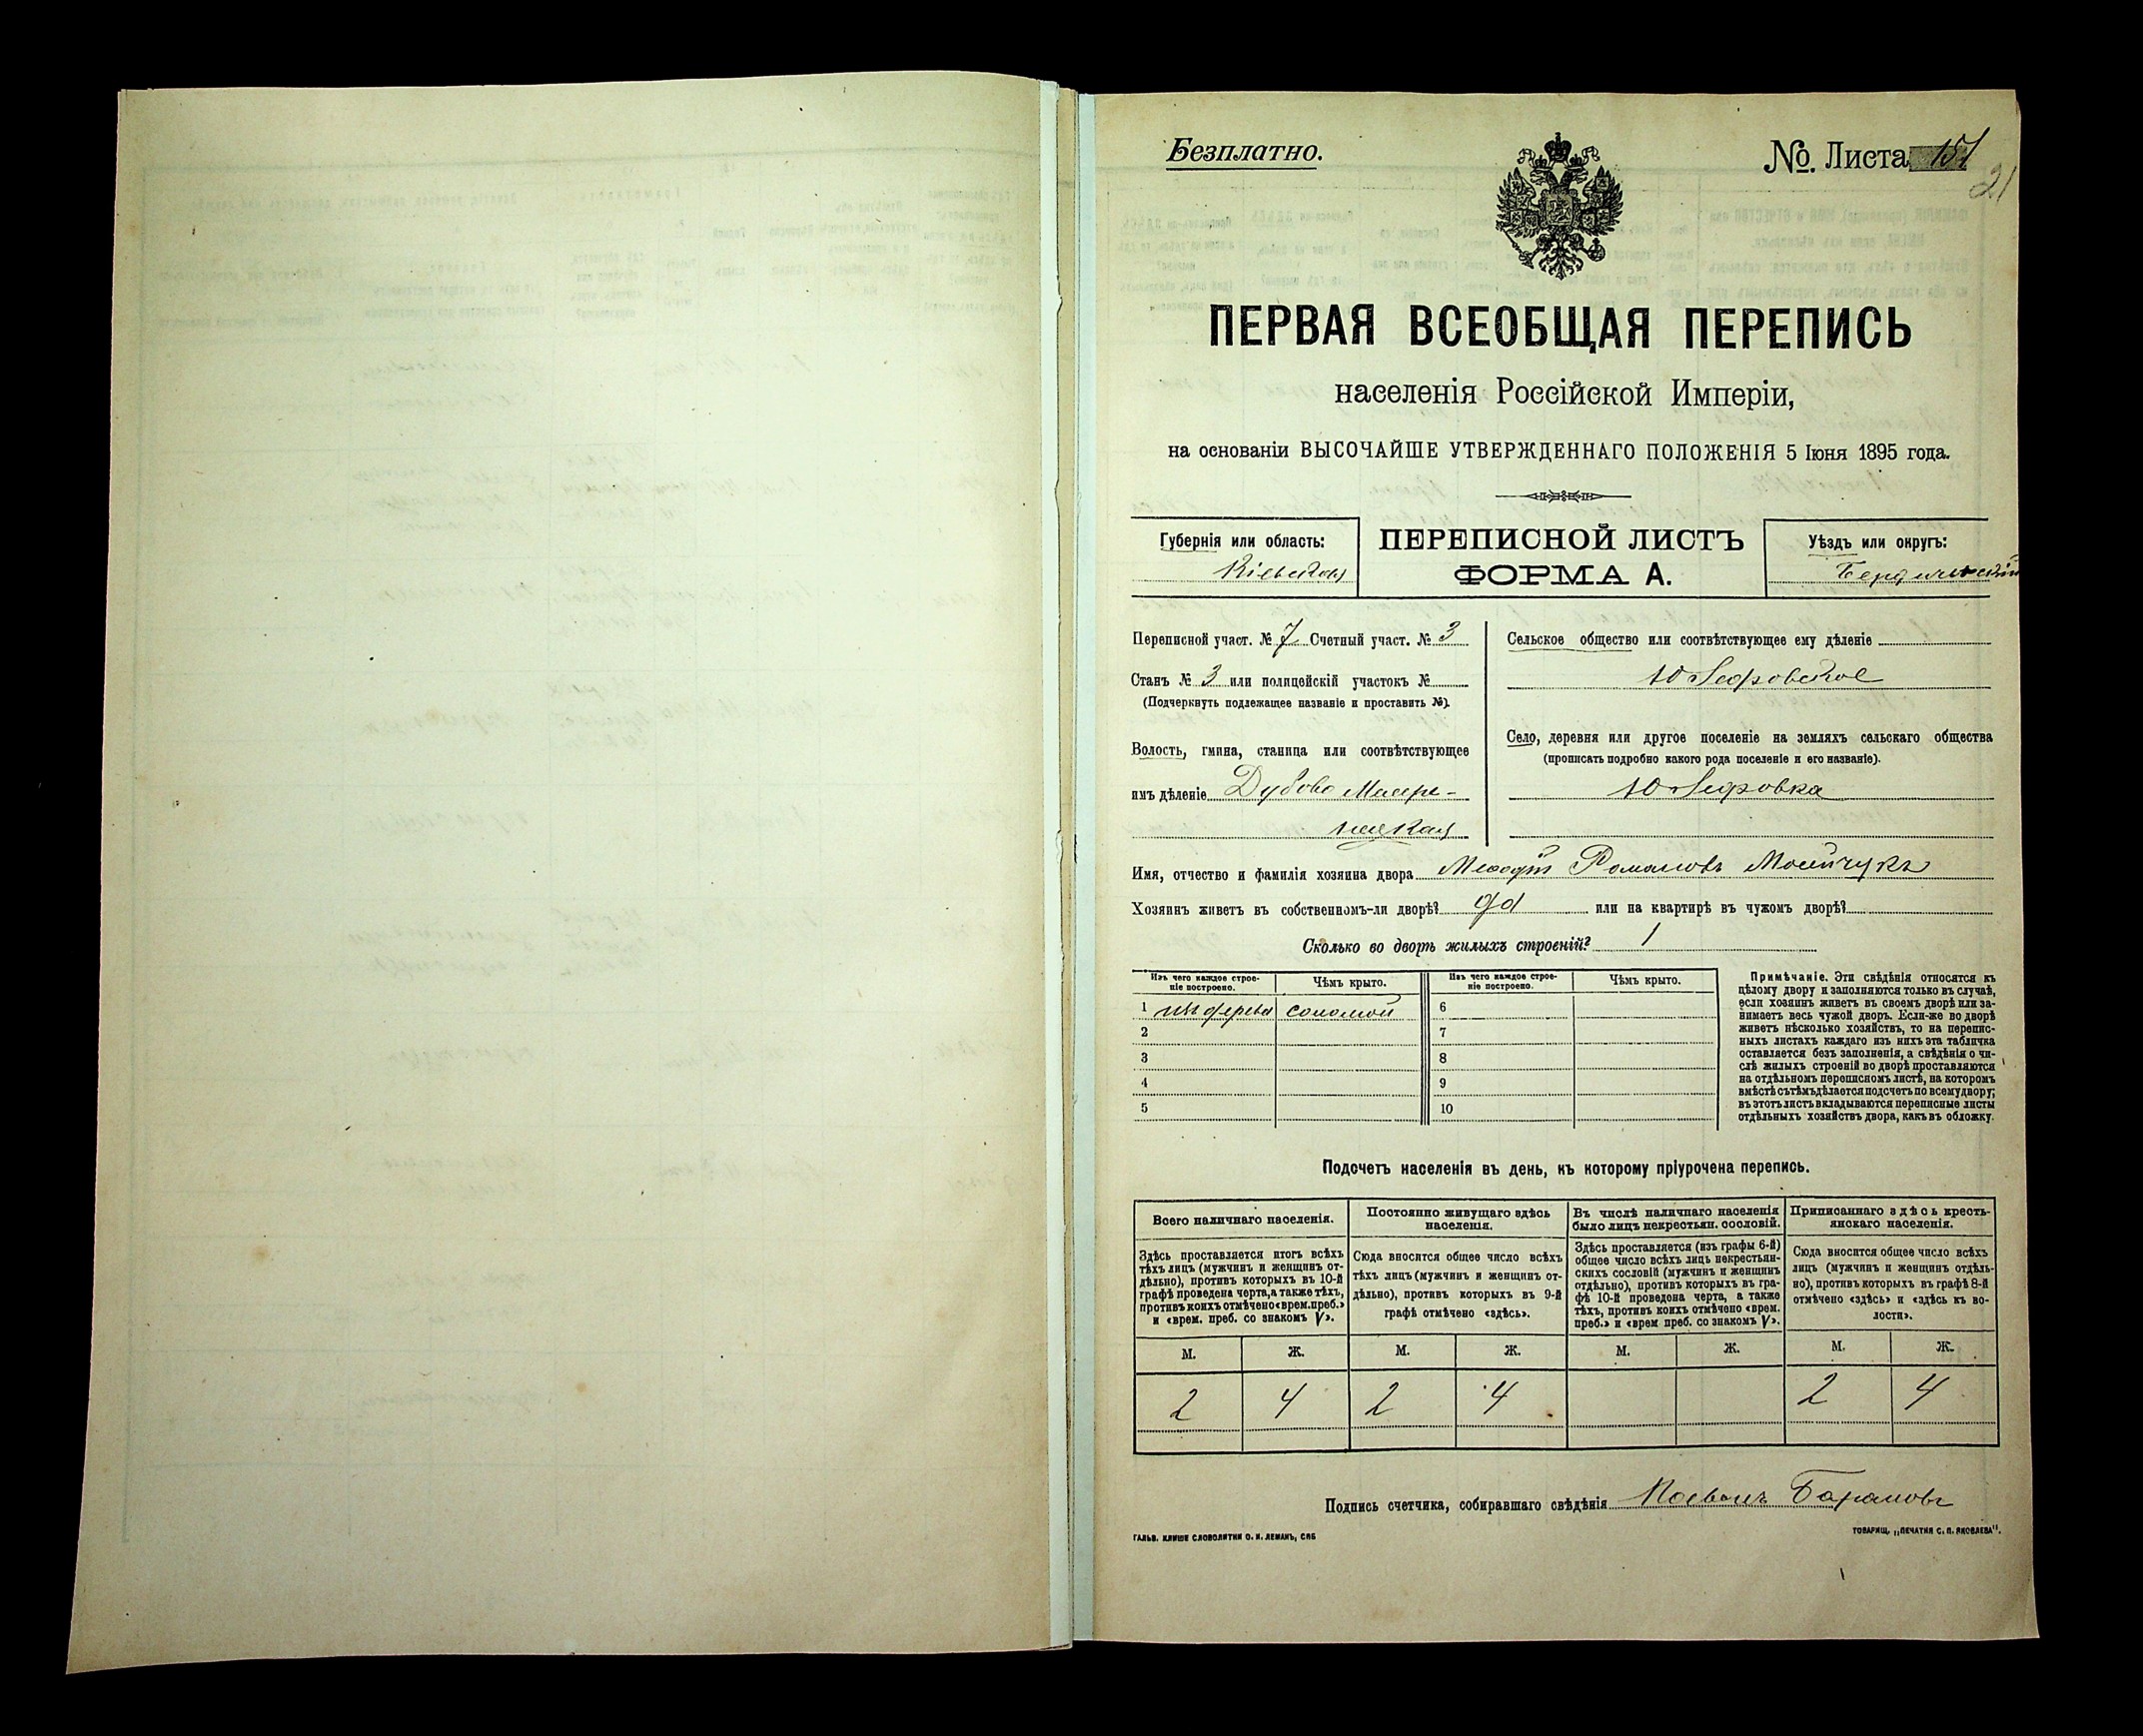 Безплатно.
№ Листа 151
21
ПЕРВАЯ ВСЕОБЩАЯ ПЕРЕПИСЬ
населенія Россійской Имперіи,
на основаніи ВЫСОЧАЙШЕ УТВЕРЖДЕННАГО ПОЛОЖЕНІЯ 5 Іюня 1895 года.
Губернія или область:
Кіевская
ПЕРЕПИСНОЙ ЛИСТЪ
ФОРМА А.
Уѣздъ или округъ:
Бердичевскій
Переписной участ. № 7 Счетный участ. № 3
Станъ № 3 или полицейскій участокъ №
(Подчеркнуть подлежащее названіе и проставить №).
Волость, гмина, станица или соотвѣтствующее
имъ дѣленіе Дубово
Сельское общество или соотвѣтствующее ему дѣленіе
Юзефовское
Село, деревня или другое поселеніе на земляхъ сельскаго общества
(прописать подробно какого рода поселеніе и его названіе).
Юзефовка
Имя, отчество и фамилія хозяина двора Мефодій Романовъ Мосійчукъ
Хозяинъ живетъ въ собственномъ-ли дворѣ? да или на квартирѣ въ чужомъ дворѣ?
Сколько во дворѣ жилыхъ строеній? 1
Изъ чего каждое строе-
ніе построено.
Чѣмъ крыто.
Изъ чего каждое строе-
ніе построено.
Чѣмъ крыто.
1 изъ дерева соломой 6
2 7
3 8
4 9
5 10
Примѣчаніе. Эти свѣдѣнія относятся къ
цѣлому двору и заполняются только въ случаѣ,
если хозяинъ живетъ въ своемъ дворѣ или за-
нимаетъ весь чужой дворъ. Если-же во дворѣ
живетъ нѣсколько хозяйствъ, то на перепис-
ныхъ листахъ каждаго изъ нихъ эта табличка
оставляется безъ заполненія, а свѣдѣнія о чи-
слѣ жилыхъ строеній во дворѣ проставляются
на отдѣльномъ переписномъ листѣ, на которомъ
вмѣстѣ съ тѣмъ дѣлается подсчетъ по всему двору;
въ этотъ листъ вкладываются переписные листы
отдѣльныхъ хозяйствъ двора, какъ въ обложку.
Подсчетъ населенія въ день, къ которому пріурочена перепись.
Всего наличнаго населенія.
Здѣсь проставляется итогъ всѣхъ
тѣхъ лицъ (мужчинъ и женщинъ от-
дѣльно), противъ которыхъ въ 10-й
графѣ проведена черта, а также тѣхъ,
противъ коихъ отмѣчено «врем. преб.»
и «врем. преб. со знакомъ V».
Постоянно живущаго здѣсь
населенія.
Сюда вносится общее число всѣхъ
тѣхъ лицъ (мужчинъ и женщинъ от-
дѣльно), противъ которыхъ въ 9-й
графѣ отмѣчено «здѣсь».
Въ числѣ наличнаго населенія
было лицъ некрестьян. сословій.
Здѣсь проставляется (изъ графы 6-й)
общее число всѣхъ лицъ некрестьян-
скихъ сословій (мужчинъ и женщинъ
отдѣльно), противъ которыхъ въ гра-
фѣ 10-й проведена черта, а также
тѣхъ, противъ коихъ отмѣчено «врем.
преб.» и «врем преб. со знакомъ V».
Приписаннаго здѣсь кресть-
янскаго населенія.
Сюда вносится общее число всѣхъ
лицъ (мужчинъ и женщинъ отдѣль-
но), противъ которыхъ въ графѣ 8-й
отмѣчено «здѣсь» и «здѣсь къ во-
лости».
М. Ж. М. Ж. М. Ж. М. Ж.
2 4 2 4 2 4
Подпись счетчика, собиравшаго свѣдѣнія Барановъ
ГАЛЬВ. КЛИШЕ СЛОВОЛИТНИ О. И. ЛЕМАНЪ, СПБ
ТОВАРИЩ. „ПЕЧАТНЯ С. П. ЯКОВЛЕВА".